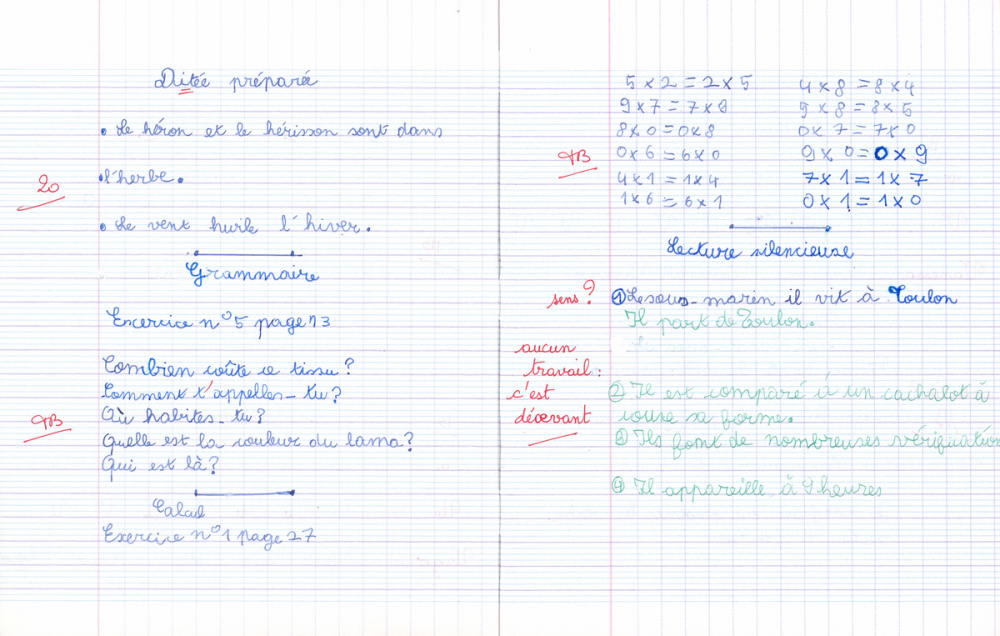 Ditée préparée
• Le héron et le hérisson sont dans
20
• l'herbe.
• Le vent hurle l'hiver.
Grammaire
Excercice n°5 page 13
Combien coûte ce tissu ?
Comment t'appelles-tu ?
TB
Où habites-tu ?
Quelle est la couleur du lama ?
Qui est là ?
Calcul
Exercice n°1 page 27
5 x 2 = 2 x 5
9 x 7 = 7 x 9
8 x 0 = 0 x 8
TB
0 x 6 = 6 x 0
4 x 1 = 1 x 4
1 x 6 = 6 x 1
4 x 8 = 8 x 4
9 x 8 = 8 x
0 x 7 = 7 x 0
9 x 0 = 0 x 9
7 x 1 = 1 x 7
0 x 1 = 1 x 0
Lecture silencieuse
sens ?
① Le sous-marin il vit à Toulon
Il part de Toulon.
aucun
travail :
c'est
décevant
② Il est comparé à un cachalot à
couse sa forme.
③ Ils font de nombreuses vérification
④ Il appareille à 9 heures